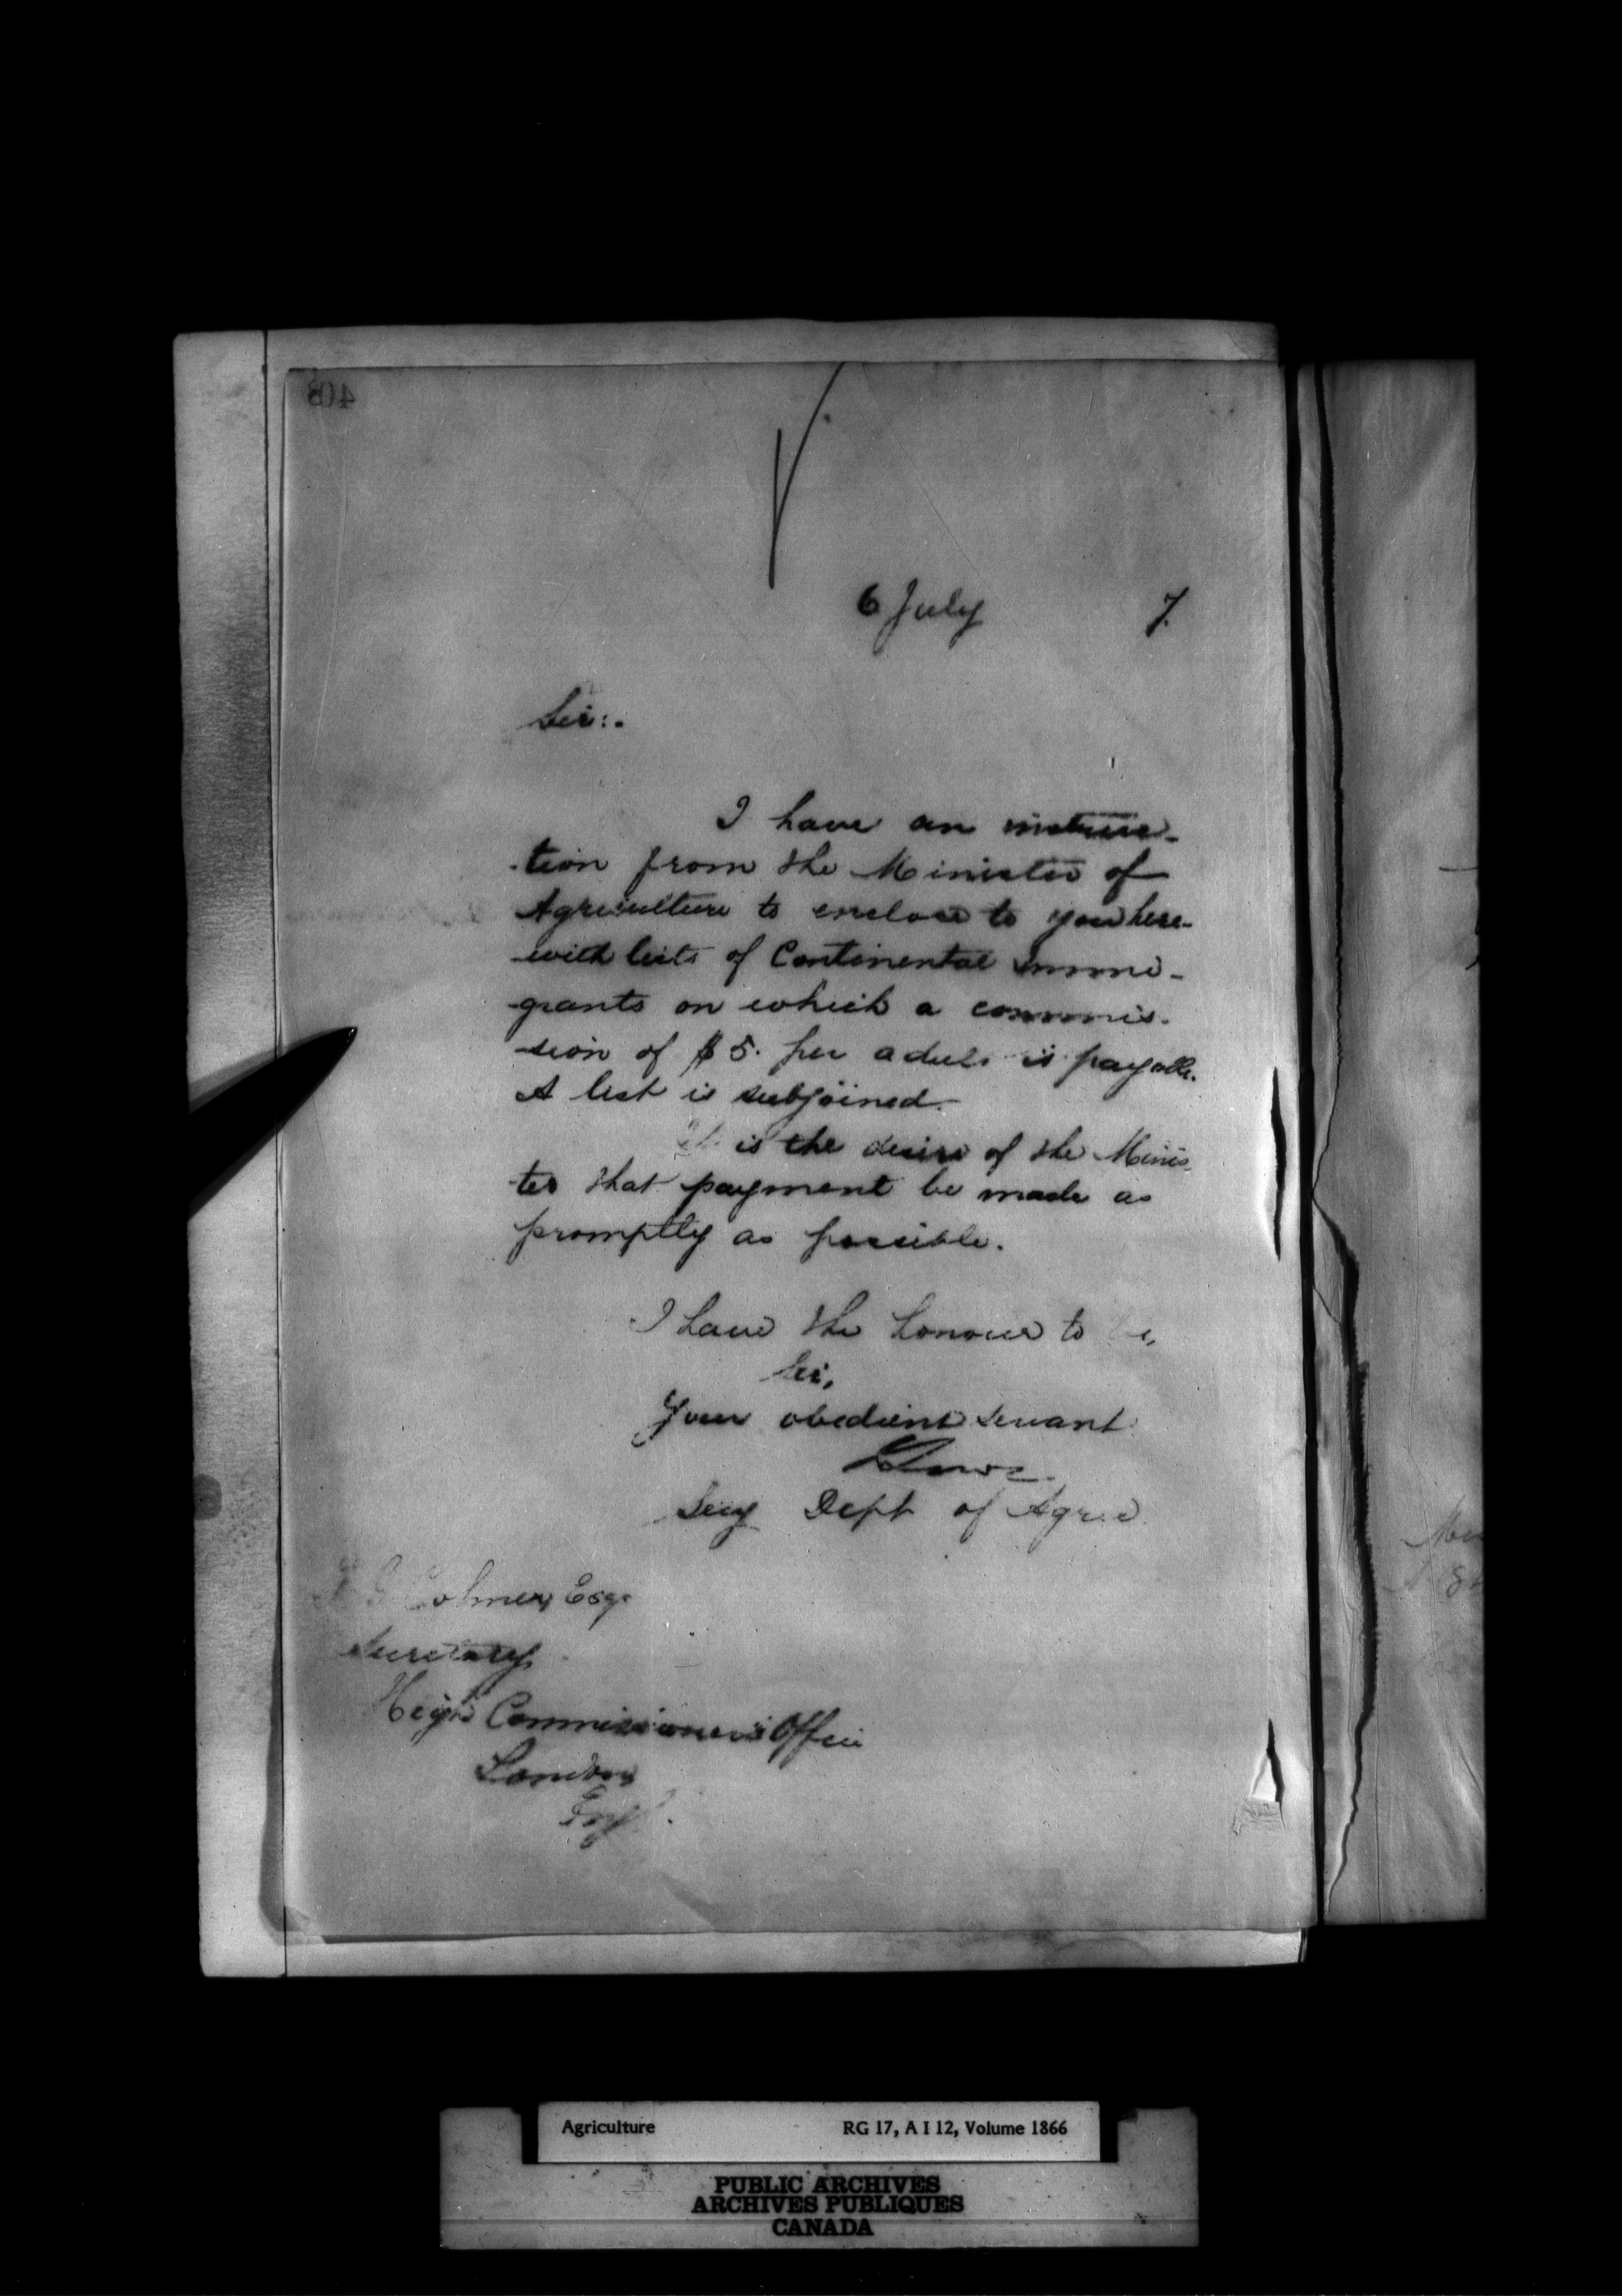 403
6 July 7.
Sir:.
I have an instruc-
-tion from the Minister of
Agriculture to enclose to you here-
-with lists of Continental Immi-
-grants on which a commis-
-sion of $5. per adult is payable.
A list is subjoined.
It is the desire of the Minis-
ter that payment be made as
promptly as possible.
I have the honour to be,
Sir,
Your obedient servant
Lowe
Secy Dept of Agric
G Colmer, Esqr
Secretary,
High Commissioner's Office
London
Engl.
Agriculture RG 17, A I 12, Volume 1866
PUBLIC ARCHIVES
ARCHIVES PUBLIQUES
CANADA